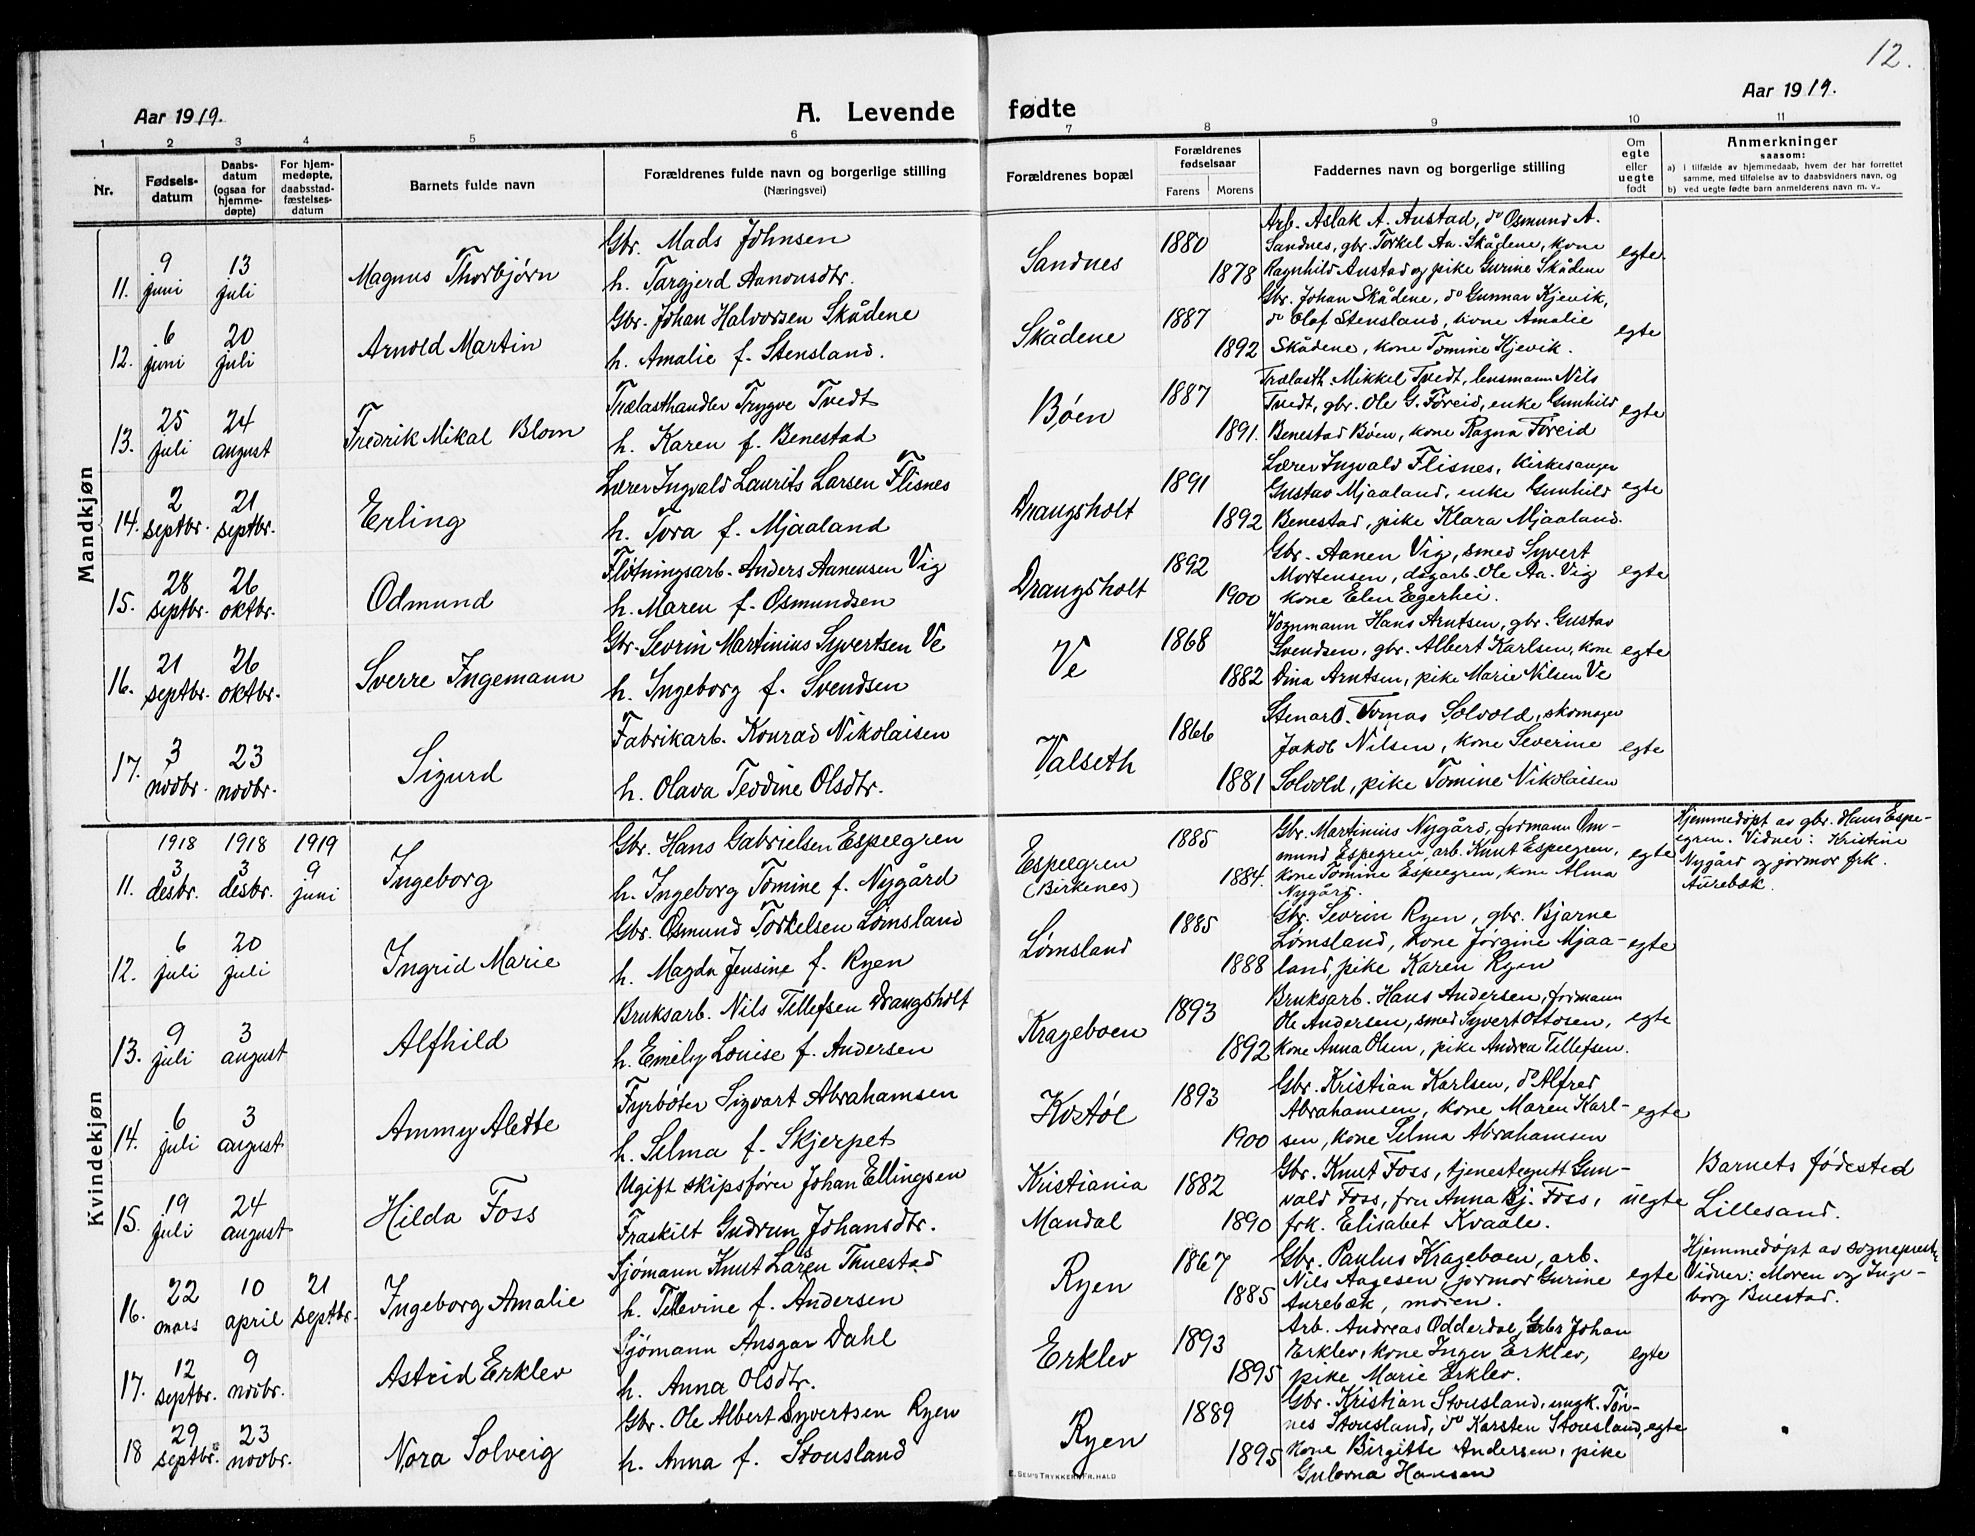 12.
Aar 1919.
A. Levende fødte
Aar 1919.
1 2 3 4 5 6 7 8 9 10 11
Nr.
Fødsels-
datum
Daabs-
datum
(ogsaa for
hjemme-
døpte)
For hjem-
medøpte,
daabsstad-
fæstelses-
datum
Barnets fulde navn
Forældrenes fulde navn og borgerlige stilling
(Næringsvei)
Forældrenes bopæl
Forældrenes
fødselsaar
Farens Morens
Faddernes navn og borgerlige stilling
Om
egte
eller
uegte
født
Anmerkninger
saasom:
a) i tilfælde av hjemmedaab, hvem der har forrettet
samme, med tilføielse av to daabsvidners navn, og
b) ved uegte fødte barn anmelderens navn m. v..
Mandkjøn
11. 9 juni 13 juli
Magnus Thorbjørn
Gbr. Mads Johnsen
h. Targjerd Aanonsdtr.
Sandnes
1880
1878
Arb. Aslak A. Austad, do Osmund A.
Sandnes, gbr. Torkel Aa. Skådene, kone
Ragnhild Austad og pike Gurine Skådene
egte
12. 6 juni 20 juli
Arnold Martin
Gbr. Johan Halvorsen Skådene
h. Amalie f. Stensland.
Skådene
1887
1892
Gbr. Johan Skådene, do Gunnar Kjevik,
do Olaf Stensland, kone Amalie
Skådene, kone Tomine Kjevik.
egte
13. 25 juli 24 august
Fredrik Mikal Blom
Trælasthandler Trygve Tvedt
h. Karen f. Benestad
Bøen
1887
1891.
Trælasth. Mikkel Tvedt, lensmann Nils
Tvedt, gbr. Ole G. Føreid, enke Gunhild
Benestad Bøen, kone Ragna Føreid
egte
14. 2 septbr. 21 septbr.
Erling
Lærer Ingvald Laurits Larsen Flisnes
h. Tora f. Mjaaland
Drangsholt
1891
1892
Lærer Ingvald Flisnes, kirkesanger
Gustav Mjaaland, enke Gunhild
Benestad, pike Klara Mjaaland.
egte
15. 28 septbr. 26 oktbr.
Odmund
Fløtningsarb. Anders Aanensen Vig
h. Maren f. Osmundsen
Drangsholt
1892
1900
Gbr. Aanen Vig, smed Syvert
Mortensen, dsgarb. Ole Aa. Vig
kone Elen Egerhei.
egte
16. 21 septbr. 26 oktbr.
Sverre Ingemann
Gbr. Sevrin Martinius Syvertsen Ve
h. Ingeborg f. Svendsen
Ve
1868
1882
Vognmann Hans Arntsen, gbr. Gustav
Svendsen, gbr. Albert Karlsen, kone
Dina Arntsen, pike Marie Nilsen Ve
egte
17. 3 novbr. 23 novbr.
Sigurd
Fabrikarb. Konrad Nikolaisen
h. Olava Tevdine Olsdtr.
Valseth
1866
1881
Stenarb. Tomas Solvold, skomager
Jakob Nilsen, kone Severine
Solvold, pike Tomine Nikolaisen
egte
Kvindekjøn
1918 1918 1919
11. 3 desbr. 3 desbr. 9 juni
Ingeborg
Gbr. Hans Gabrielsen Espeegren
h. Ingeborg Tomine f. Nygård
Espeegren
(Birkenes)
1885
1884.
Gbr. Martinius Nygård, formann Om-
mund Espegren, arb. Knut Espeegren,
kone Tomine Espeegren, kone Alma
Nygård.
egte
Hjemmedøpt av gbr. Hans Espe-
egren. Vidner: Kristine
Nygård og jormor frk.
Aurebæk.
12. 6 juli 20 juli
Ingrid Marie
Gbr. Osmund Torkelsen Lømsland
h. Magda Jensine f. Ryen
Lømsland
1885
1888
Gbr. Sevrin Ryen, gbr. Bjarne
Lømsland, kone Jørgine Mjaa-
land, pike Karen Ryen
egte
13. 9 juli 3 august
Alfhild
Bruksarb. Nils Tillefsen Drangsholt
h. Emely Louise f. Andersen
Krageboen
1893
1892
Bruksarb. Hans Andersen, formann
Ole Andersen, smed Syvert Ottosen,
kone Anna Olsen, pike Andrea Tillefsen.
egte
14. 6 juli 3 august
Ammy Alette
Fyrbøter Sigvart Abrahamsen
h. Selma f. Skjerpet
Kostøl
1893
1900
Gbr. Kristian Karlsen, do Alfred
Abrahamsen, kone Maren Karl-
sen, kone Selma Abrahamsen
egte
15. 19 juli 24 august
Hilda Foss
Ugift skipsfører Johan Ellingsen
Fraskilt Gudrun Johansdtr.
Kristiania
Mandal
1882
1890
Gbr. Knut Foss, tjenestegutt Gun-
vald Foss, fru Anna Bj. Foss,
frk. Elisabet Kvaale.
uegte
Barnets fødested
Lillesand.
16. 22 mars 10 april 21 septbr.
Ingeborg Amalie
Sjømann Knut Lårén Thuestad
h. Tellevine f. Andersen
Ryen
1867
1885
Gbr. Paulus Krageboen, arb.
Nils Aagesen, jormor Gurine
Aurebæk, moren.
egte
Hjemmedøpt av sogneprest.
Vidner: Moren og Inge-
borg Buestad.
17. 12 septbr. 9 novbr.
Astrid Erklev
Sjømann Ansgar Dahl
h. Anna Olsdtr.
Erklev
1893
1895
Arb. Andreas Odderdal, Gbr Johan
Erklev, kone Inger Erklev,
pike Marie Erklev.
egte
18 29 septbr. 23 novbr.
Nora Solveig
Gbr. Ole Albert Syvertsen Ryen
h. Anna f. Stousland
Ryen
1889
1895
Gbr. Kristian Stousland, ungk. Tøn-
nes Stousland, do Karsten Stousland,
kone Birgitte Andersen, pike
Gulovna Hansen
egte
E. SEM'S TRYKKERI, FR.HALD